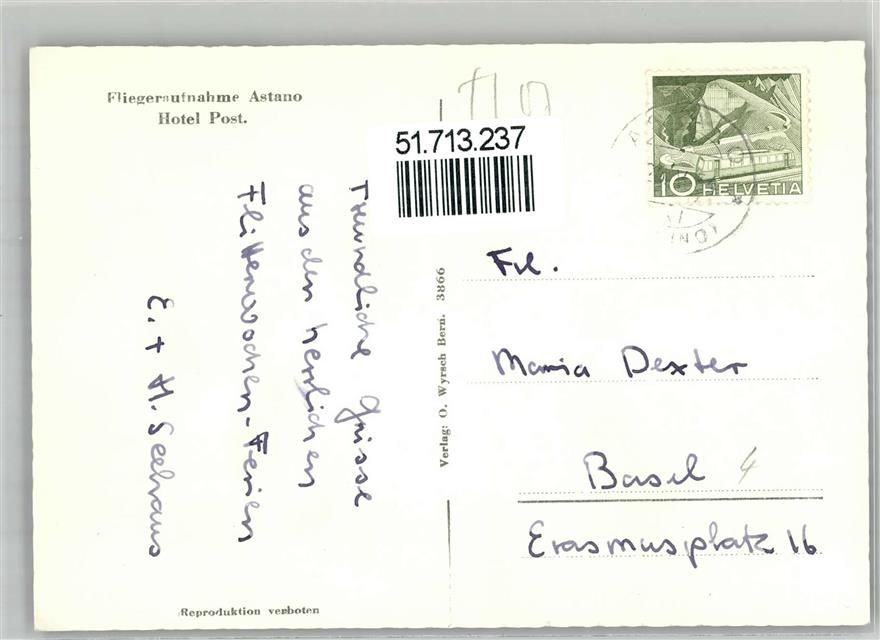 Fliegeraufnahme Astano
Hotel Post.
51.713.237
10 HELVETIA
Freundliche Grüsse
aus den herrlichen
Flitterwochen-Ferien
E. + H. Seehaus
Verlag: O. Wyrsch Bern. 3866
Frl.
Maria Dexter
Basel 4
Erasmusplatz 16
Reproduktion verboten